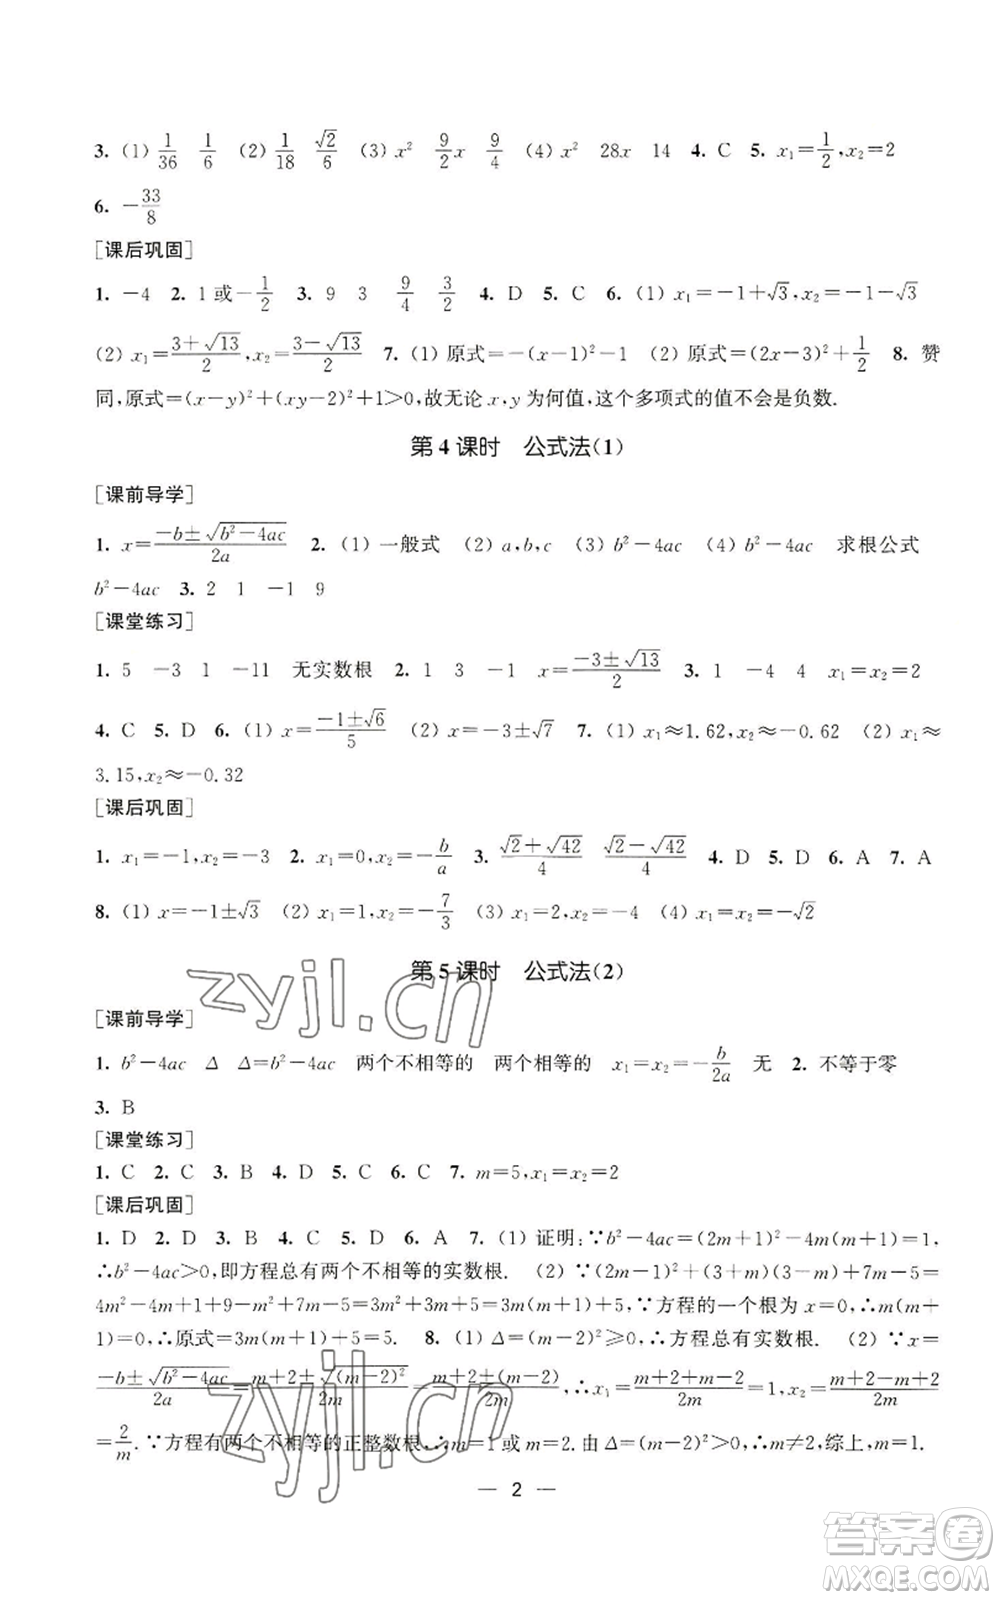 3. (1) 1/36 1/6 (2) 1/18 √2/6 (3) x² 9/2x 9/4 (4) x² 28x 14 4. C 5. x₁=1/2, x₂=2
6. -33/8
[课后巩固]
1. -4 2. 1或-1/2 3. 9 3 9/4 3/2 4. D 5. C 6. (1) x₁=-1+√3, x₂=-1-√3
(2) x₁=(3+√13)/2, x₂=(3-√13)/2 7. (1) 原式=-(x-1)²-1 (2) 原式=(2x-3)²+1/2 8. 赞
同,原式=(x-y)²+(xy-2)²+1>0,故无论 x,y 为何值,这个多项式的值不会是负数.
第4课时 公式法(1)
[课前导学]
1. x=(-b±√(b²-4ac))/2a 2. (1) 一般式 (2) a,b,c (3) b²-4ac (4) b²-4ac 求根公式
b²-4ac 3. 2 1 -1 9
[课堂练习]
1. 5 -3 1 -11 无实数根 2. 1 3 -1 x=(-3±√13)/2 3. 1 -4 4 x₁=x₂=2
4. C 5. D 6. (1) x=(-1±√6)/5 (2) x=-3±√7 7. (1) x₁≈1.62, x₂≈-0.62 (2) x₁≈
3.15, x₂≈-0.32
[课后巩固]
1. x₁=-1, x₂=-3 2. x₁=0, x₂=-b/a 3. (√2+√42)/4 (√2-√42)/4 4. D 5. D 6. A 7. A
8. (1) x=-1±√3 (2) x₁=1, x₂=-7/3 (3) x₁=2, x₂=-4 (4) x₁=x₂=-√2
第5课时 公式法(2)
[课前导学]
1. b²-4ac Δ Δ=b²-4ac 两个不相等的 两个相等的 x₁=x₂=-b/2a 无 2. 不等于零
3. B
[课堂练习]
1. C 2. C 3. B 4. D 5. C 6. C 7. m=5, x₁=x₂=2
[课后巩固]
1. D 2. D 3. B 4. C 5. D 6. A 7. (1) 证明:∵b²-4ac=(2m+1)²-4m(m+1)=1,
∴b²-4ac>0,即方程总有两个不相等的实数根. (2) ∵(2m-1)²+(3+m)(3-m)+7m-5=
4m²-4m+1+9-m²+7m-5=3m²+3m+5=3m(m+1)+5,∵方程的一个根为 x=0,∴m(m+
1)=0,∴原式=3m(m+1)+5=5. 8. (1) Δ=(m-2)²≥0,∴方程总有实数根. (2) ∵x=
(-b±√(b²-4ac))/2a=(m+2±√(m-2)²)/2m=(m+2±(m-2))/2m,∴x₁=(m+2+m-2)/2m=1,x₂=(m+2-m+2)/2m
=2/m.∵方程有两个不相等的正整数根,∴m=1或 m=2. 由 Δ=(m-2)²>0,∴m≠2,综上,m=1.
— 2 —
zyjl.cn
zyjl.cn
答案卷
MXQE.COM